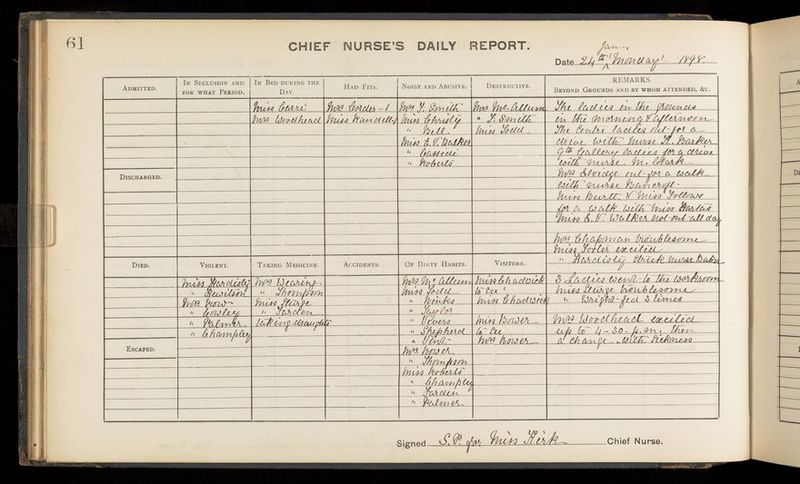 61
CHIEF NURSE'S DAILY REPORT.
Jany.
Date 24th Monday 1898.
ADMITTED.
IN SECLUSION AND FOR WHAT PERIOD.
IN BED DURING THE DAY.
Miss Carri
Mrs Woodhead
HAD FITS.
Mrs Corder - 1
Miss Handelly
NOISY AND ABUSIVE.
Mrs J. Smith
Miss Christy
" Bell
Miss E. V. Walker
" Cassidi
" Roberts
DESTRUCTIVE.
Mrs McCallum
" J. Smith
Miss Todd
REMARKS.
BEYOND GROUNDS AND BY WHOM ATTENDED, &C.
The ladies in the grounds
in the morning & afternoon
The Centre ladies out for a
drive with Nurse H. Barker
9th Gallery ladies for a drive
with nurse M. Clark
Mrs Elvidge out for a walk
with nurse Bancroft
Miss Burtt. & Miss Follows
for a walk with Miss
Miss E. V. Walker not out all day
Mrs Chapman troublesome
Miss excited
" Hardisty struck Nurse Baker
DISCHARGED.
DIED.
VIOLENT.
Miss Hardisty
" Hewitson
Mrs How
" Cowsley
" Palmer
" Champley
TAKING MEDICINE.
Mrs Wearing
" Thompson
Miss Sturge
" Jarden
taking draughts
ACCIDENTS.
OF DIRTY HABITS.
Mrs McCallum
Miss Todd
" Binks
" Taylor
" Vevers
" Shepherd
" Vint
Mrs Bower
" Thompson
Miss Roberts
" Champley
" Jarden
" Palmer
VISITORS.
Miss Chadwick
to see
Miss Chadwick
Miss Bower
to see
Mrs Bower
3 Ladies went to the workroom
Miss Sturge troublesome
" Wright fed 3 times
Mrs Woodhead excited
up to 4-30. p.m. then
a change. with sickness
ESCAPED.
Signed S.P. for Miss Kirk Chief Nurse.